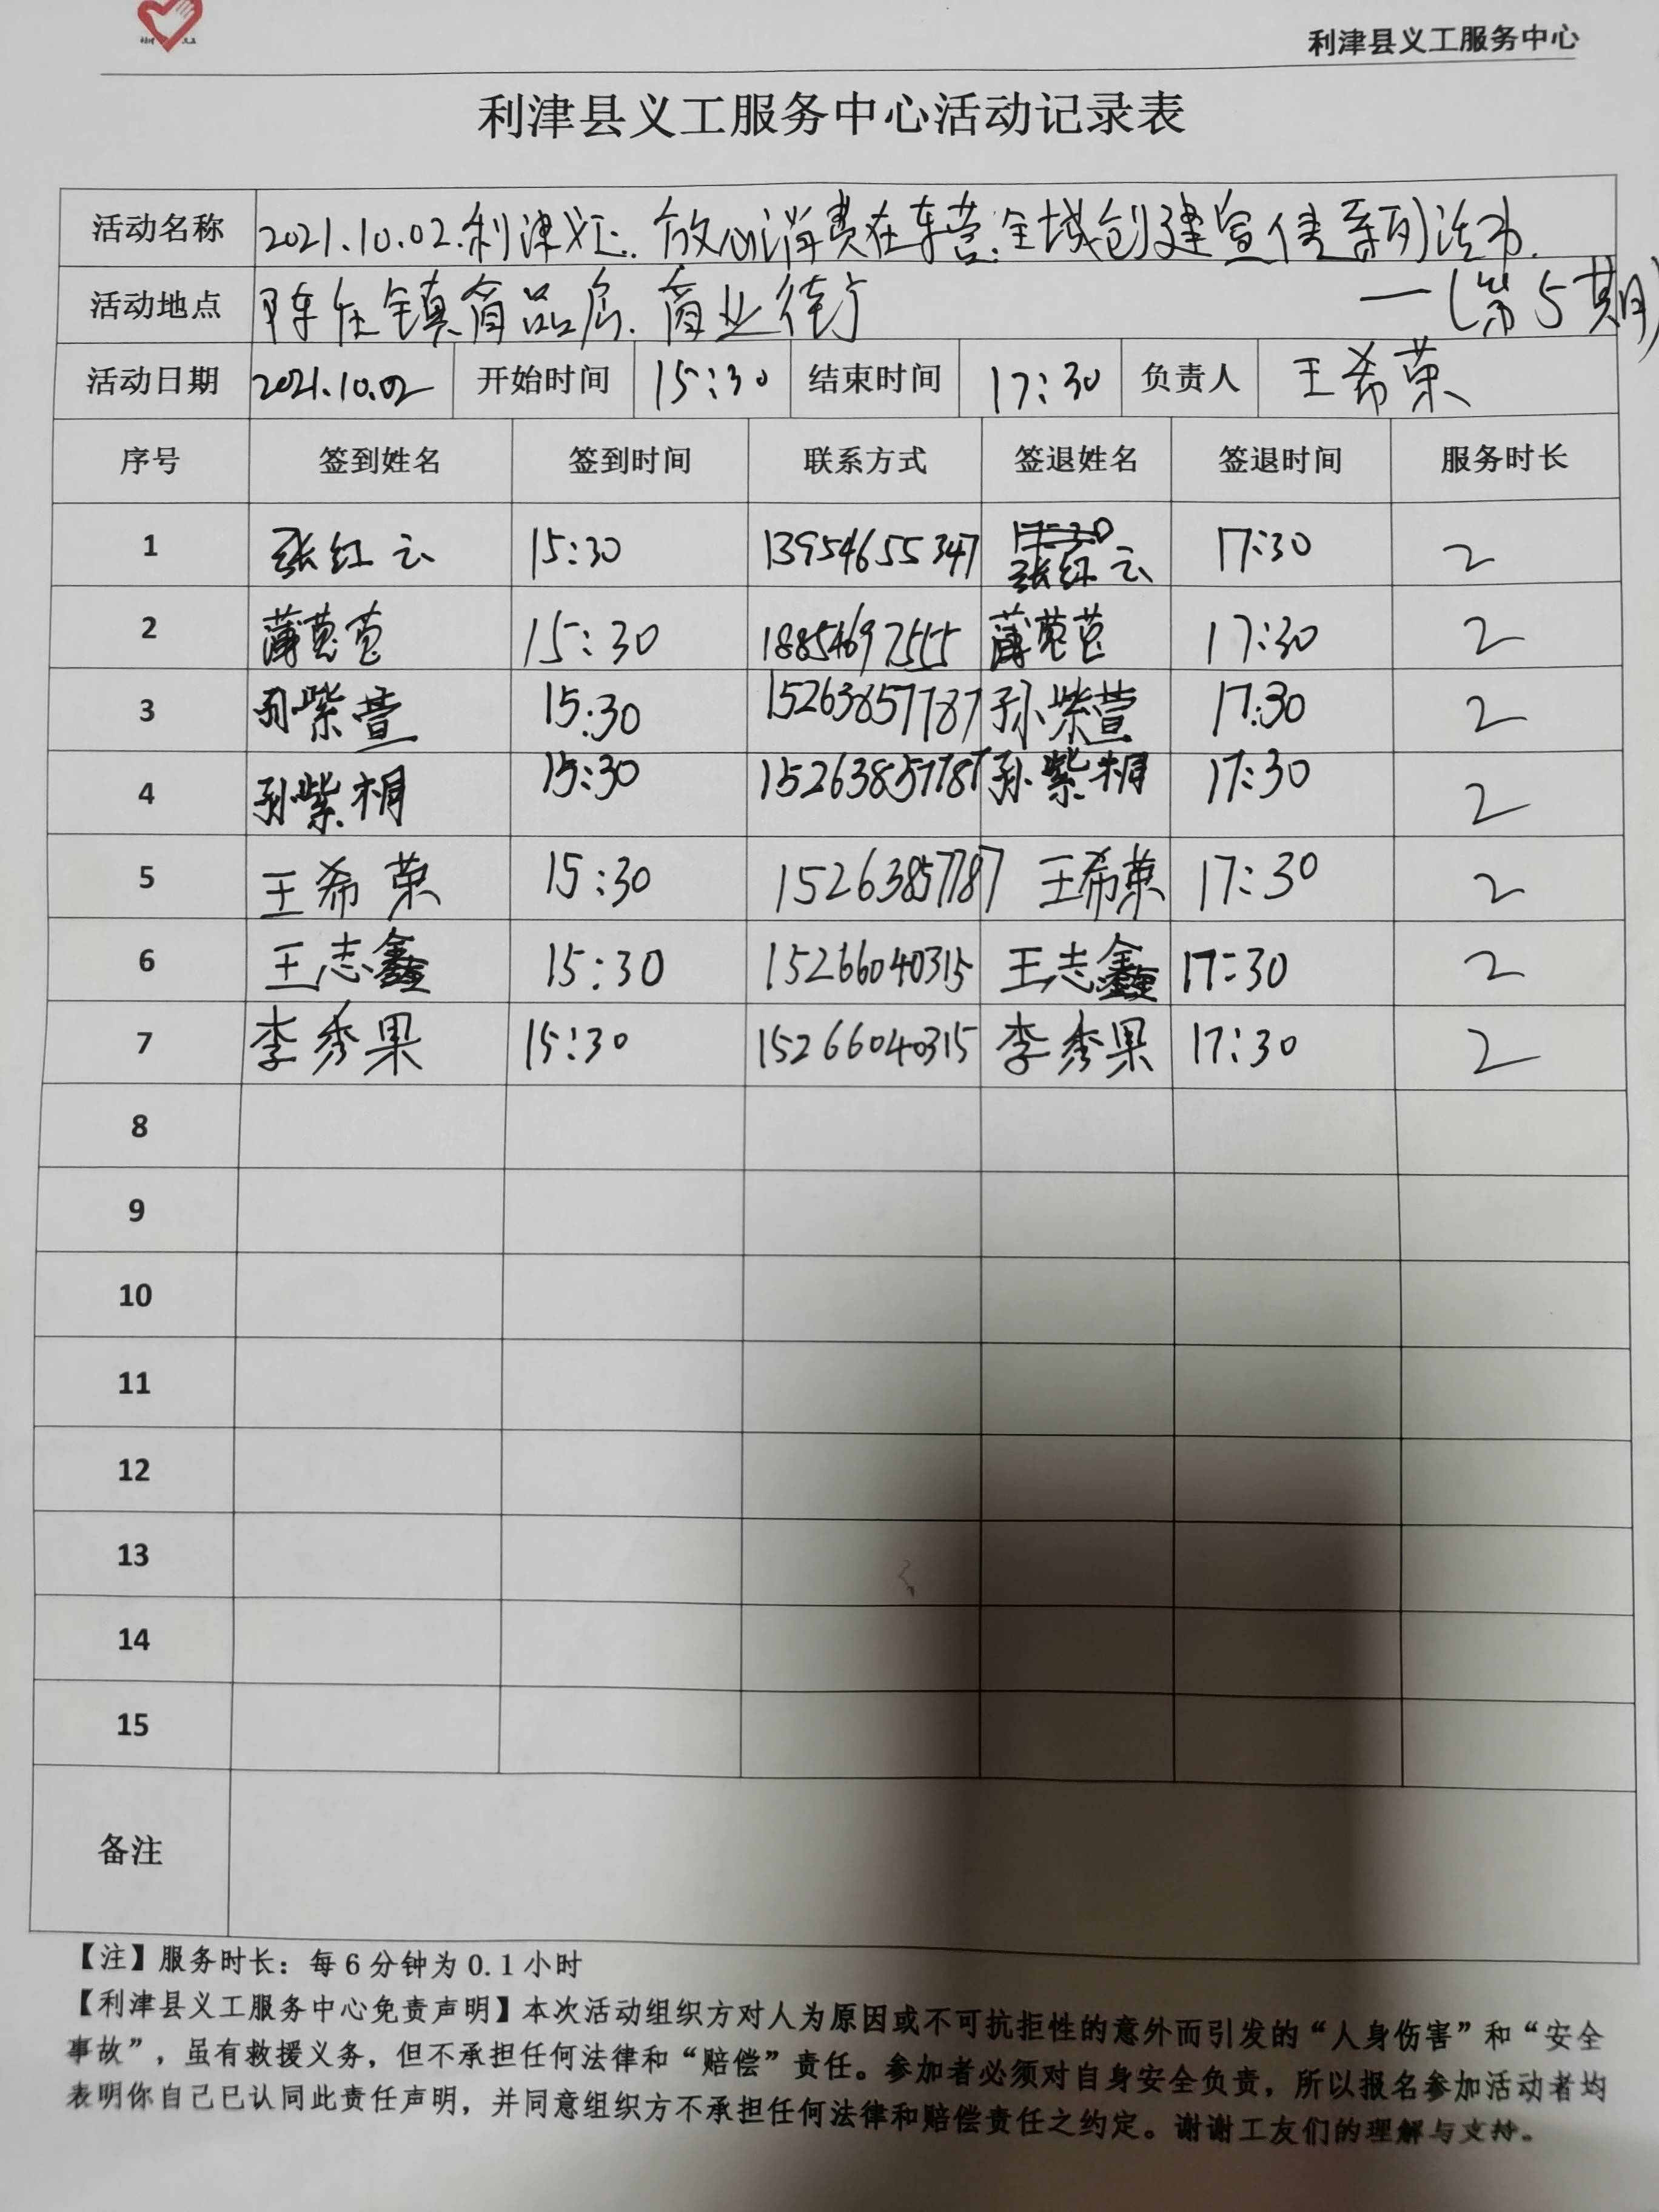 利津县义工服务中心
利津县义工服务中心活动记录表
活动名称 2021.10.02.利津义工.放心消费在东营.全域创建宣传系列活动.
活动地点 陈庄镇商品房.商业街 —(第5期)
活动日期 2021.10.02 开始时间 15:30 结束时间 17:30 负责人 王希荣
序号 签到姓名 签到时间 联系方式 签退姓名 签退时间 服务时长
1 张红云 15:30 13954655347 张红云 17:30 2
2 15:30 17:30 2
3 孙紫萱 15:30 15263857787 孙紫萱 17:30 2
4 孙紫桐 15:30 15263857787 孙紫桐 17:30 2
5 王希荣 15:30 15263857787 王希荣 17:30 2
6 王志鑫 15:30 15266040315 王志鑫 17:30 2
7 李秀果 15:30 15266040315 李秀果 17:30 2
8
9
10
11
12
13
14
15
备注
【注】服务时长：每6分钟为0.1小时
【利津县义工服务中心免责声明】本次活动组织方对人为原因或不可抗拒性的意外而引发的“人身伤害”和“安全
事故”，虽有救援义务，但不承担任何法律和“赔偿”责任。参加者必须对自身安全负责，所以报名参加活动者均
表明你自己已认同此责任声明，并同意组织方不承担任何法律和赔偿责任之约定。谢谢工友们的理解与支持。